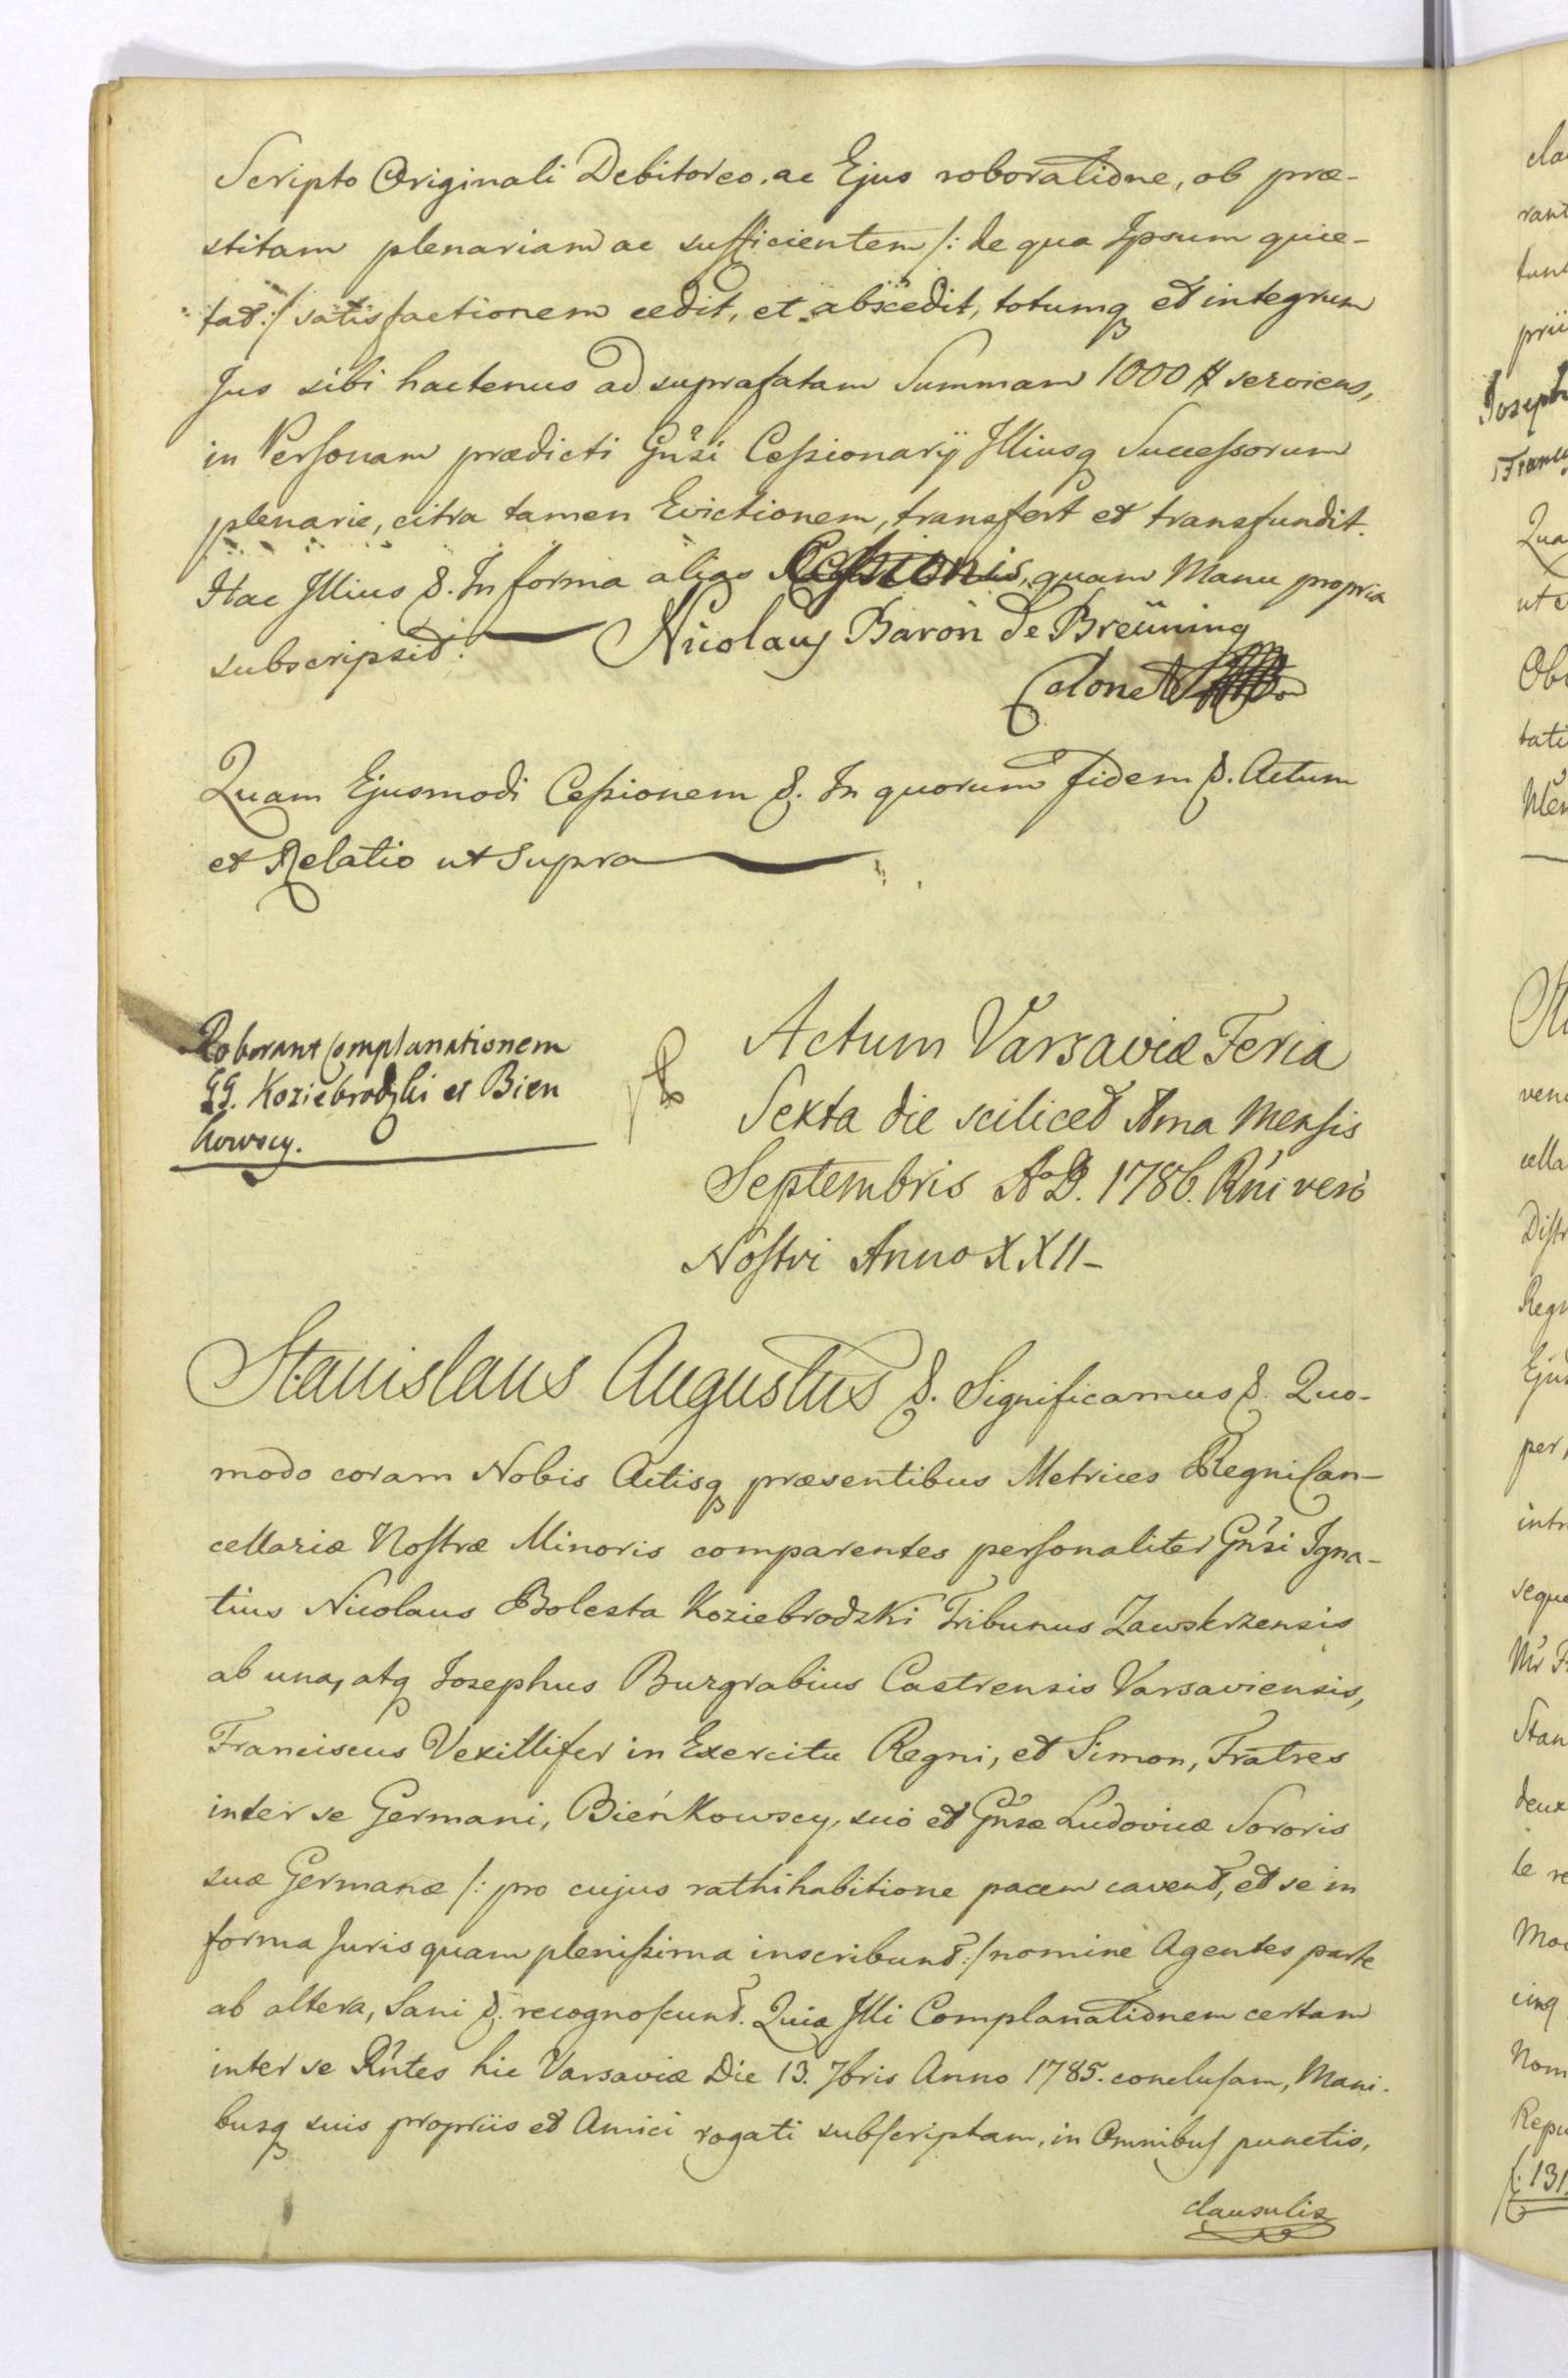 Scripto Originali Debitoreo, ac Ejus roboratione, ob præ-
stitam plenariam ac sufficientem /: de qua Ipsum quie-
tat :/ satisfactionem cedit, et abscedit, totumq et integrum
Jus sibi hactenus ad suprafatam Summam 1000 # serviens,
in Personam prædicti Gnsi Cessionarij Illiusq Successorum
plenarie, citra tamen Evictionem, transfert et transfundit.
Hac Illius &. In forma alias Cessionis, quam Manu propria
subscripsit. Nicolaus Baron de Breüning
Colonel
Quam Ejusmodi Cessionem &. In quorum fidem &. Actum
et Relatio ut Supra
Roborant Complanationem
GG. Koziebrodzki et Bien
kowscy.
Actum Varsaviæ Feria
Sexta die scilicet Ima Mensis
Septembris A D. 1786. Rni vero
Nostri Anno XXII
Stanislaus Augustus &. Significamus &. Quo-
modo coram Nobis Actisq præsentibus Metrices Regni Can-
cellariæ Nostræ Minoris comparentes personaliter Gnsi Igna-
tius Nicolaus Bolesta Koziebrodzki Tribunus Zawskrzensis
ab una, atq Josephus Burgrabius Castrensis Varsaviensis,
Franciscus Vexillifer in Exercitu Regni, et Simon, Fratres
inter se Germani, Bieńkowscy, suo et Gnsæ Ludovicæ Sororis
suæ Germanæ /: pro cujus rathihabitione pacem cavent, et se in
forma Juris quam plenissima inscribunt :/ nomine Agentes parte
ab altera, Sani &. recognoscunt. Quia Illi Complanationem certam
inter se Rntes hic Varsaviæ Die 13. 7bris Anno 1785. conclusam, Mani-
busq suis propriis et Amici rogati subscriptam, in Omnibus punctis,
clausulis